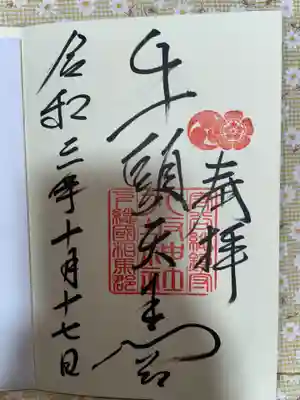 奉拝
牛頭天王
八坂神社
令和三年十月十七日